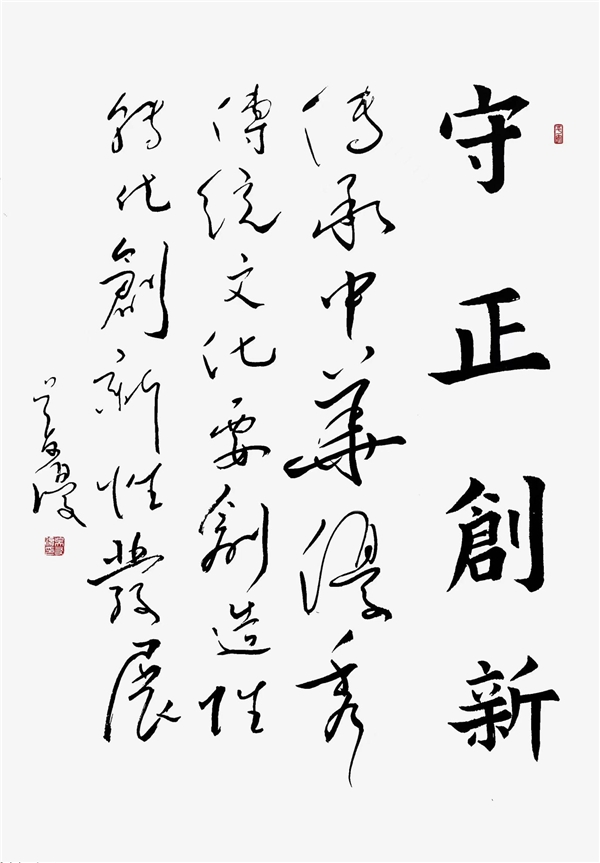 守正創新
傳承中華優秀
傳統文化要創造性
轉化創新性發展